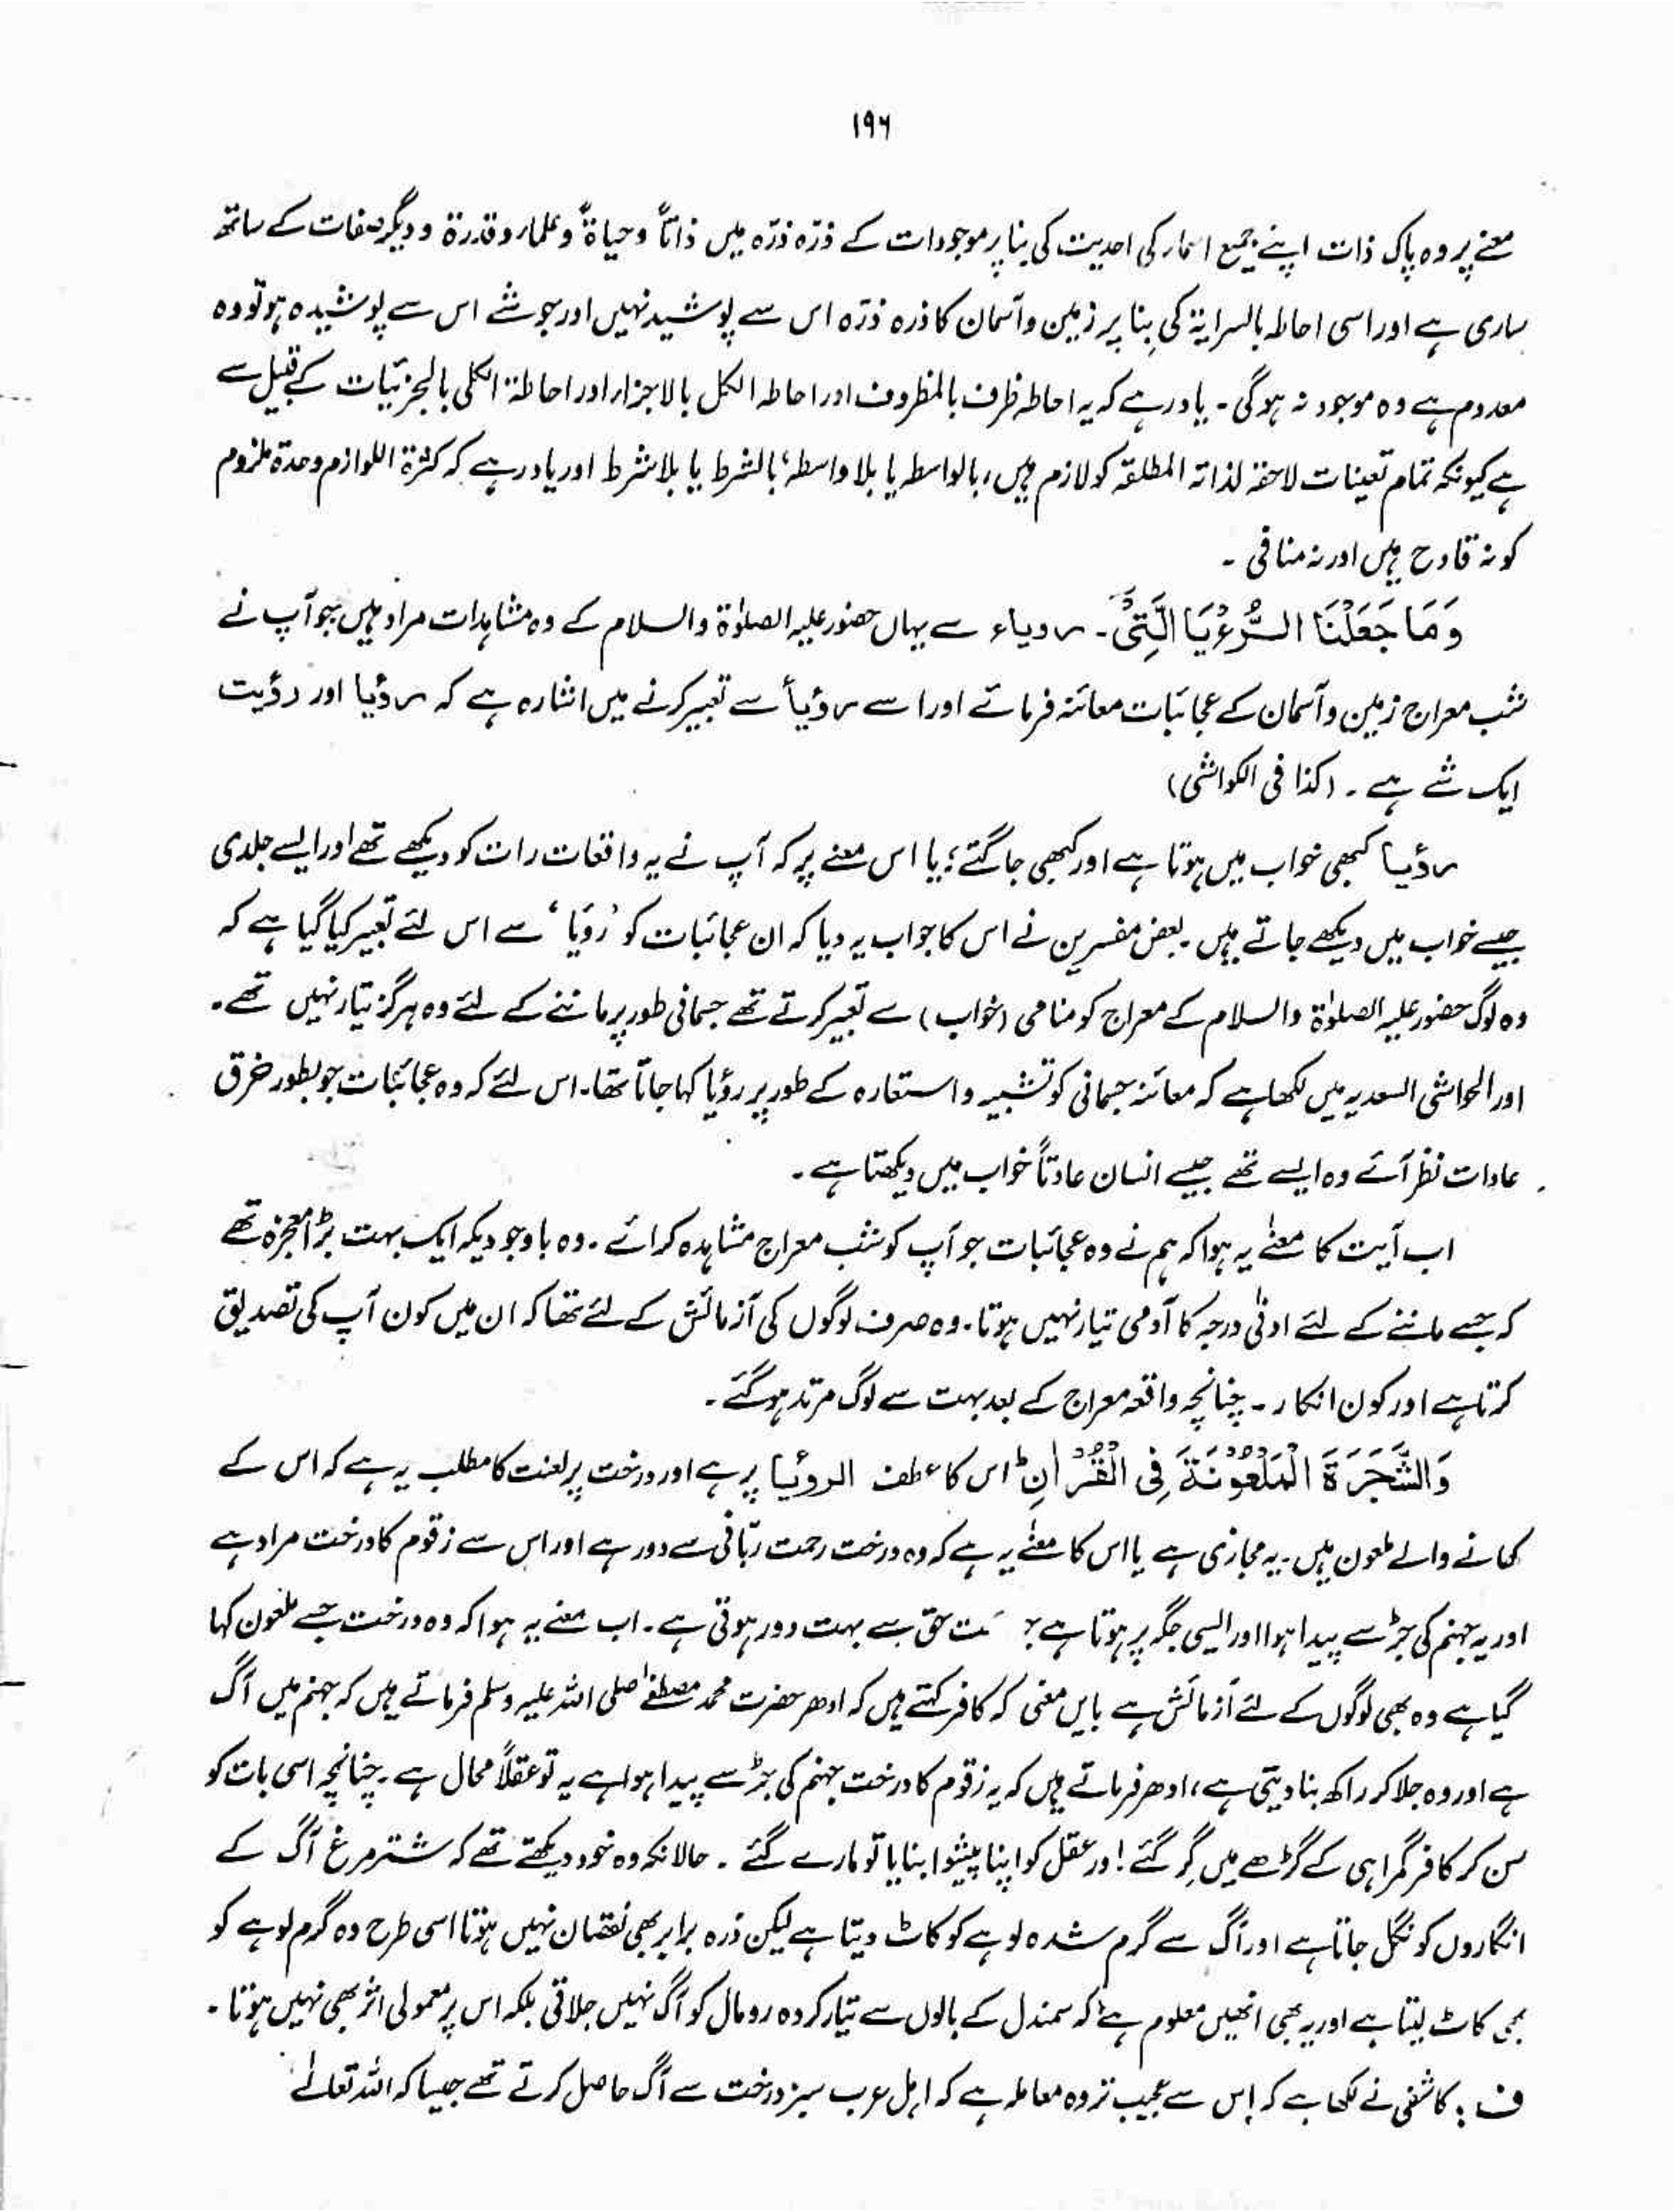 ۱۹۶
معنے پر وہ پاک ذات اپنے جمیع اسماء کی احدیت کی بنا پر موجودات کے ذرّہ ذرّہ میں ذاتاً و حیاۃً و علماء و قدرۃ و دیگر صفات کے ساتھ
ساری ہے اور اسی احاطہ بالسرایۃ کی بنا پر زمین و آسمان کا ذرہ ذرّہ اس سے پوشید نہیں اور جو شے اس سے پوشیدہ ہو تو وہ
معدوم ہے وہ موجود نہ ہوگی۔ یاد رہے کہ یہ احاطہ ظرف بالمظروف اور احاطہ الکل بالاجزاء اور احاطۃ الکلی بالجزئیات کے قبیل سے
ہے کیونکہ تمام تعینات لاحقہ لذاتہ المطلقہ کو لازم ہیں، بالواسطہ یا بلا واسطہ، بالشرط یا بلا شرط اور یاد رہے کہ کثرۃ اللوازم وحدۃ ملزوم
کو نہ قادح ہیں اور نہ منافی ۔
وَمَا جَعَلْنَا الرُّءْيَا الَّتِيْ۔ رویاء سے یہاں حضور علیہ الصلوٰۃ والسلام کے وہ مشاہدات مراد ہیں جو آپ نے
شب معراج زمین و آسمان کے عجائبات معائنہ فرمائے اور اسے رؤیاً سے تعبیر کرنے میں اشارہ ہے کہ رؤیا اور رؤیت
ایک شے ہے ۔ (کذا فی الکواشی)
رؤیا کبھی خواب میں ہوتا ہے اور کبھی جاگتے؛ یا اس معنے پر کہ آپ نے یہ واقعات رات کو دیکھے تھے اور ایسے جلدی
جیسے خواب میں دیکھے جاتے ہیں ۔ بعض مفسرین نے اس کا جواب یہ دیا کہ ان عجائبات کو ’رؤیا‘ سے اس لئے تعبیر کیا گیا ہے کہ
وہ لوگ حضور علیہ الصلوٰۃ والسلام کے معراج کو منامی (خواب) سے تعبیر کرتے تھے جسمانی طور پر ماننے کے لئے وہ ہرگز تیار نہیں تھے۔
اور الحواشی السعدیہ میں لکھا ہے کہ معائنہ جسمانی کو تشبیہ و استعارہ کے طور پر رؤیا کہا جاتا تھا۔ اس لئے کہ وہ عجائبات جو بطور خرق
عادات نظر آئے وہ ایسے تھے جیسے انسان عادتاً خواب میں دیکھتا ہے ۔
اب آیت کا معنےٰ یہ ہوا کہ ہم نے وہ عجائبات جو آپ کو شب معراج مشاہدہ کرائے ۔ وہ باوجودیکہ ایک بہت بڑا معجزہ تھے
کہ جسے ماننے کے لئے ادنیٰ درجہ کا آدمی تیار نہیں ہوتا۔ وہ صرف لوگوں کی آزمائش کے لئے تھا کہ ان میں کون آپ کی تصدیق
کرتا ہے اور کون انکار ۔ چنانچہ واقعہ معراج کے بعد بہت سے لوگ مرتد ہوگئے ۔
وَالشَّجَرَةَ الْمَلْعُوْنَةَ فِي الْقُرْاٰنِ ؕ اس کا عطف الروئیا پر ہے اور درخت پر لعنت کا مطلب یہ ہے کہ اس کے
کھانے والے ملعون ہیں ۔ یہ مجازی ہے یا اس کا معنےٰ یہ ہے کہ وہ درخت رحمت ربّانی سے دور ہے اور اس سے زقوم کا درخت مراد ہے
اور یہ جہنم کی جڑ سے پیدا ہوا اور ایسی جگہ پر ہوتا ہے حق سے بہت دور ہوتی ہے ۔ اب معنے یہ ہوا کہ وہ درخت جسے ملعون کہا
گیا ہے وہ بھی لوگوں کے لئے آزمائش ہے بایں معنی کہ کافر کہتے ہیں کہ ادھر حضرت محمد مصطفےٰ صلی اللہ علیہ وسلم فرماتے ہیں کہ جہنم میں آگ
ہے اور وہ جلا کر راکھ بنا دیتی ہے، ادھر فرماتے ہیں کہ یہ زقوم کا درخت جہنم کی جڑ سے پیدا ہوا ہے یہ تو عقلاً محال ہے ۔ چنانچہ اسی بات کو
سن کر کافر گمراہی کے گڑھے میں گر گئے! اور عقل کو اپنا پیشوا بنایا تو مارے گئے ۔ حالانکہ وہ خود دیکھتے تھے کہ شترمرغ آگ کے
انگاروں کو نگل جاتا ہے اور آگ سے گرم شدہ لوہے کو کاٹ دیتا ہے لیکن ذرہ برابر بھی نقصان نہیں ہوتا اسی طرح وہ گرم لوہے کو
بھی کاٹ لیتا ہے اور یہ بھی انھیں معلوم ہے کہ سمندل کے بالوں سے تیار کردہ رومال کو آگ نہیں جلاتی بلکہ اس پر معمولی اثر بھی نہیں ہوتا ۔
ف : کاشفی نے لکھا ہے کہ اس سے عجیب تر وہ معاملہ ہے کہ اہل عرب سبز درخت سے آگ حاصل کرتے تھے جیسا کہ اللہ تعالےٰ